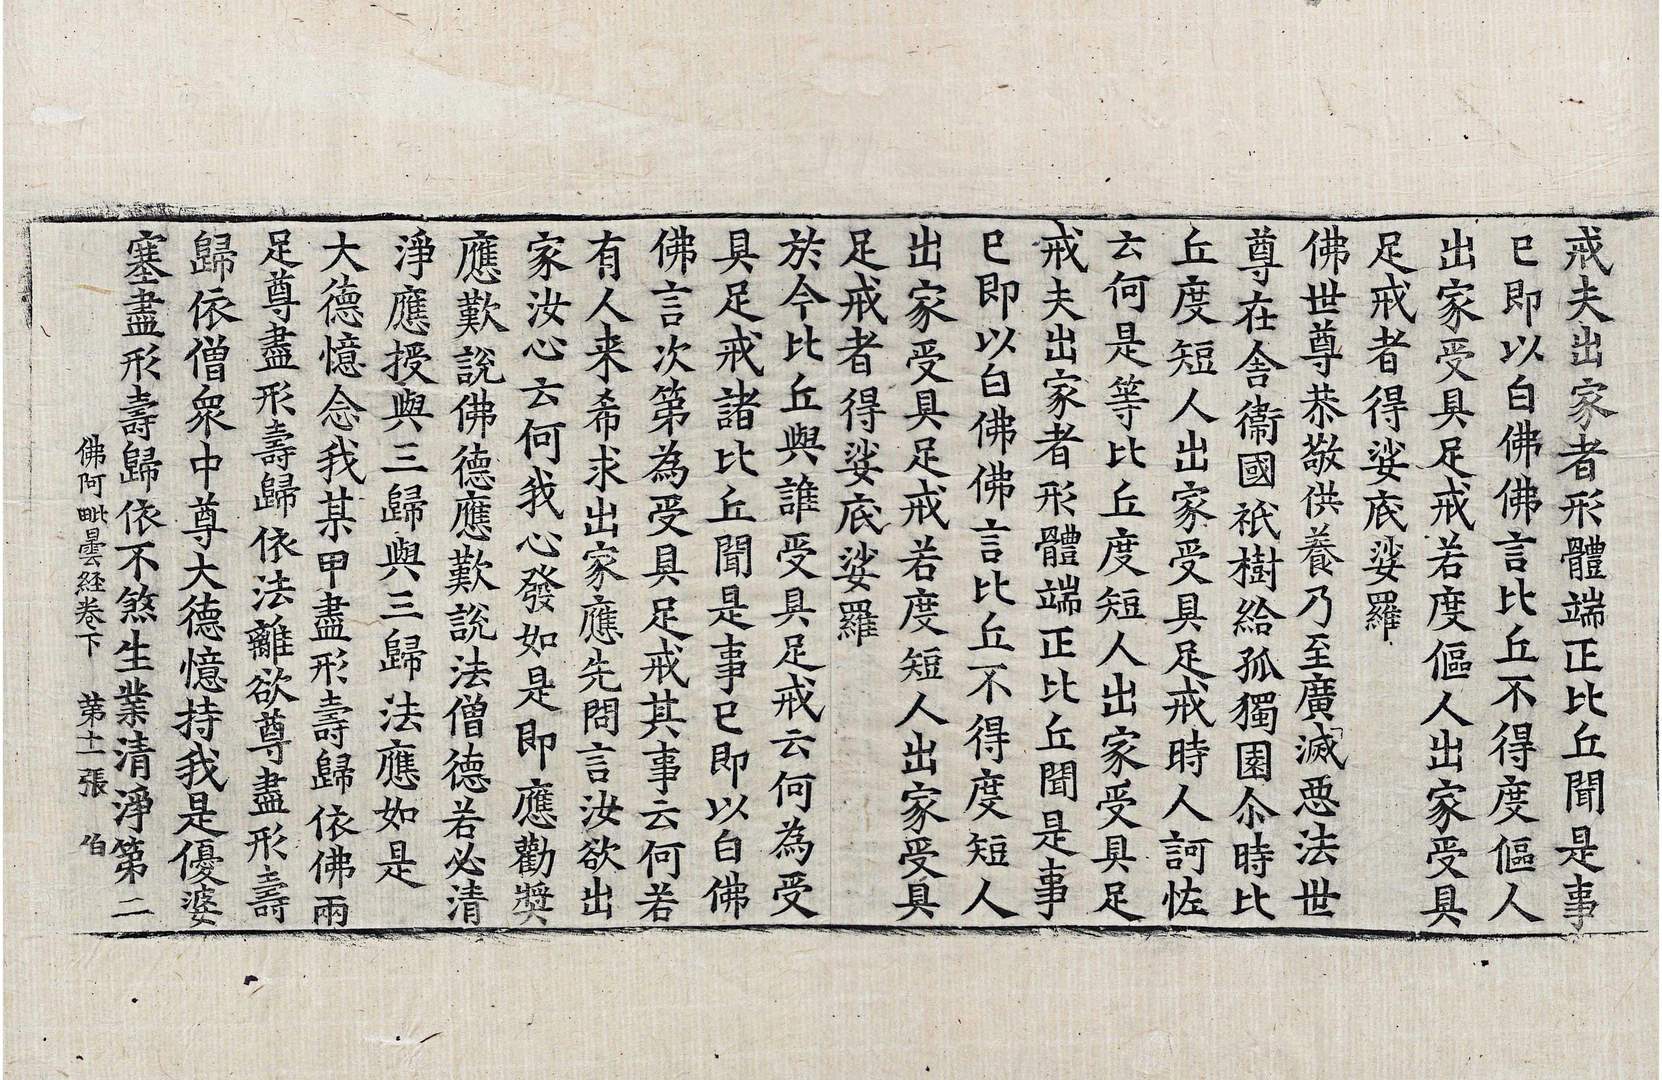 戒夫出家者形體端正比丘聞是事
已即以白佛佛言比丘不得度傴人
出家受具足戒若度傴人出家受具
足戒者得娑底娑羅
佛世尊恭敬供養乃至廣滅惡法世
尊在舍衞國祇樹給孤獨園尒時比
丘度短人出家受具足戒時人訶恠
云何是等比丘度短人出家受具足
戒夫出家者形體端正比丘聞是事
已即以白佛佛言比丘不得度短人
出家受具足戒若度短人出家受具
足戒者得娑底娑羅
於今比丘與誰受具足戒云何為受
具足戒諸比丘聞是事已即以白佛
佛言次第為受具足戒其事云何若
有人来希求出家應先問言汝欲出
家汝心云何我心發如是即應勸奬
應歎說佛德應歎說法僧德若必清
淨應授與三歸與三歸法應如是
大德憶念我某甲盡形壽歸依佛兩
足尊盡形壽歸依法離欲尊盡形壽
歸依僧眾中尊大德憶持我是優婆
塞盡形壽歸依不煞生業清淨第二
佛阿毗曇経卷下 第十一張 伯